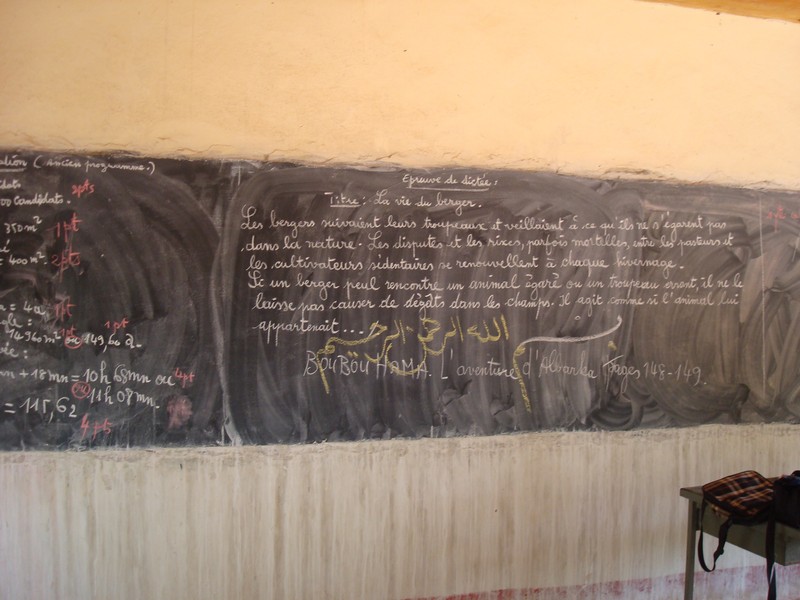 (Ancien programme.)
2pts
350m²
1pt
= 400m²
2pts
1pt
1pt
14960m² ou 149,60 a.
mn + 18mn = 10h 68mn ou 4pt
11h 08mn.
= 115,62
4pts
Epreuve de dictée :
Titre : La vie du berger.
Les bergers suivaient leurs troupeaux et veillaient à ce qu'ils ne s'égarent pas
dans la nature. Les disputes et les rixes, parfois mortelles, entre les pasteurs et
les cultivateurs sédentaires se renouvellent à chaque hivernage.
Si un berger peul rencontre un animal égaré ou un troupeau errant, il ne le
laisse pas causer de dégâts dans les champs. Il agit comme si l'animal lui
appartenait...
بسم الله الرحمن الرحيم
BOUBOU HAMA. L'aventure d'Albarka Pages 148-149.